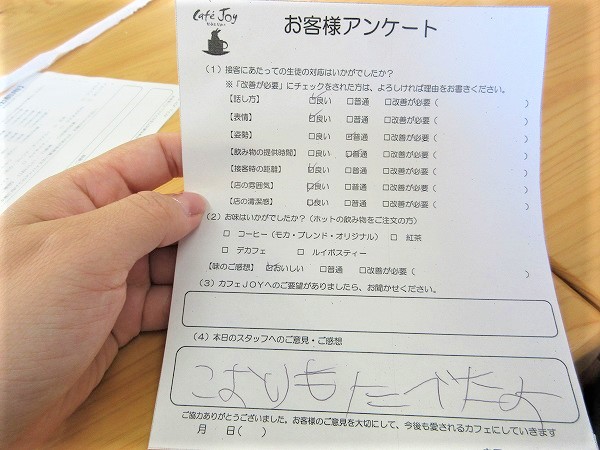 Café Joy
お客様アンケート
(1)接客にあたっての生徒の対応はいかがでしたか?
※「改善が必要」にチェックをされた方は、よろしければ理由をお書きください。
【話し方】 □良い □普通 □改善が必要( )
【表情】 □良い □普通 □改善が必要( )
【姿勢】 □良い □普通 □改善が必要( )
【飲み物の提供時間】 □良い □普通 □改善が必要( )
【接客時の距離】 □良い □普通 □改善が必要( )
【店の雰囲気】 □良い □普通 □改善が必要( )
【店の清潔感】 □良い □普通 □改善が必要( )
(2)お味はいかがでしたか?(ホットの飲み物をご注文の方)
□ コーヒー(モカ・ブレンド・オリジナル) □ 紅茶
□ デカフェ □ ルイボスティー
【味のご感想】 □おいしい □普通 □改善が必要( )
(3)カフェJOYへのご要望がありましたら、お聞かせください。
(4)本日のスタッフへのご意見・ご感想
たべたよ
ご協力ありがとうございました。お客様のご意見を大切にして、今後も愛されるカフェにしていきます
月 日( )